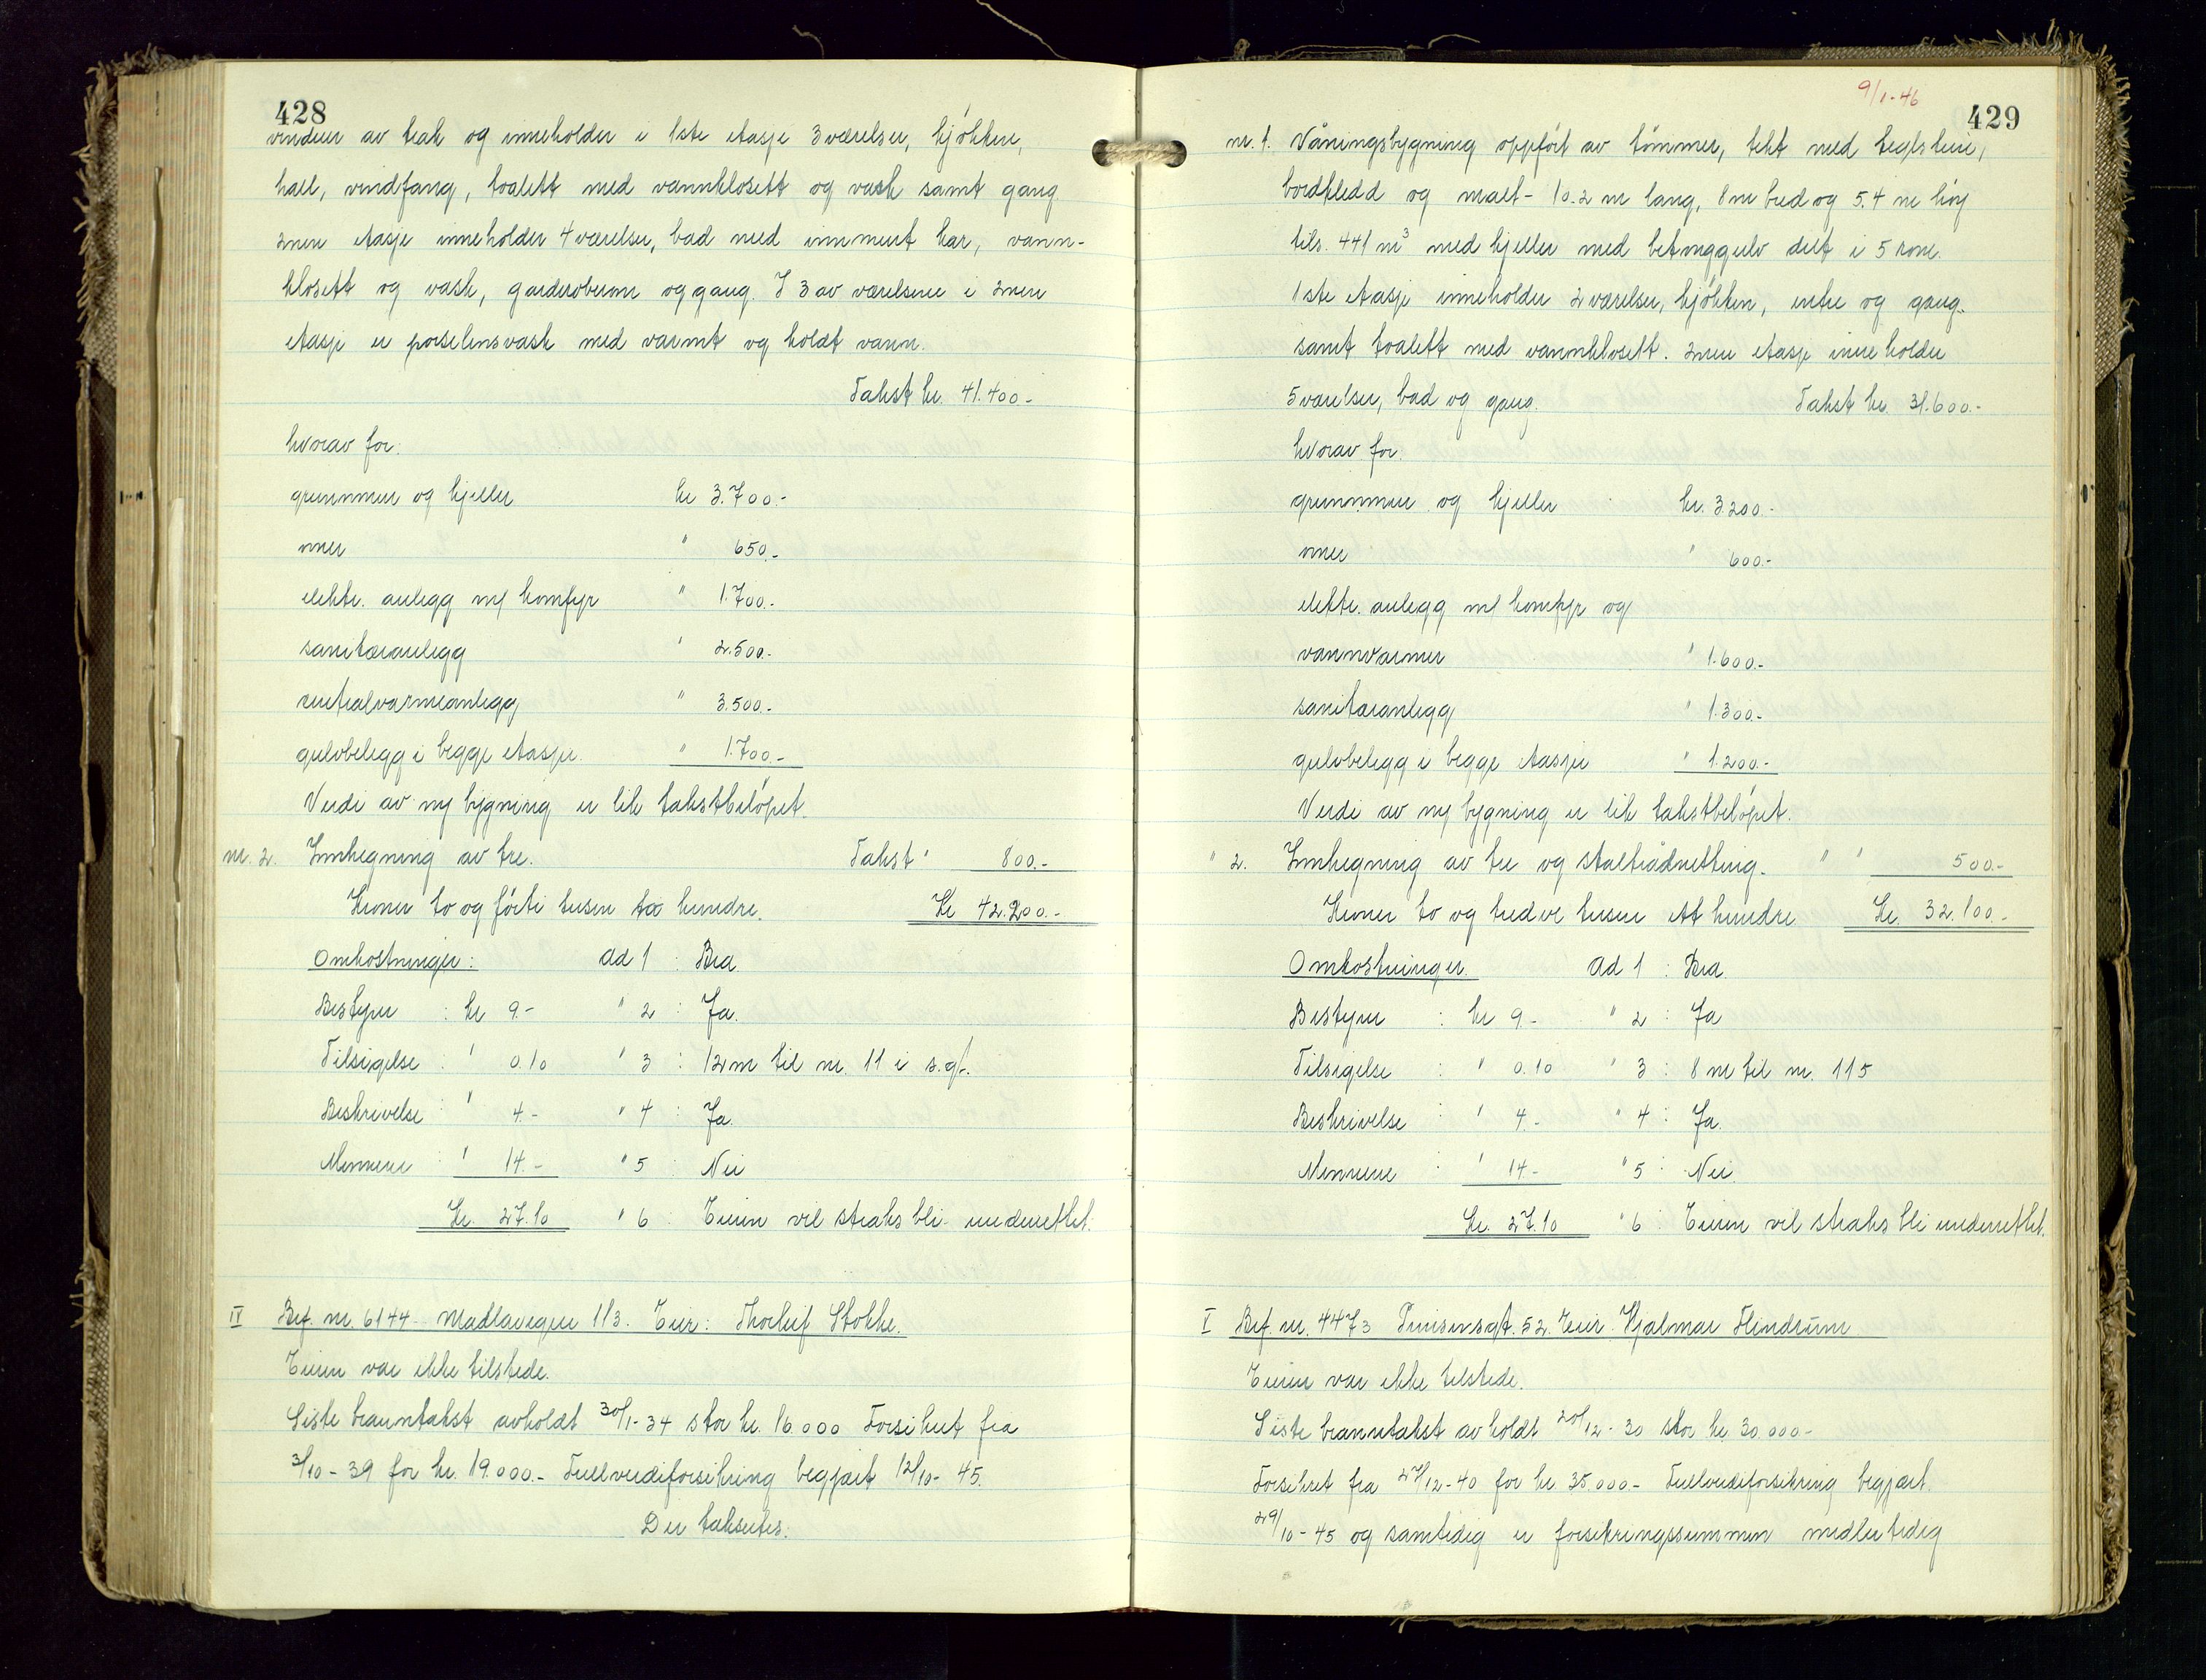 428
vinduer av teak og inneholder i 1ste etasje 3 værelser, kjøkken,
hall, vindfang, toalett med vannklosett og vask samt gang
2nen etasje inneholder 4 værelser, bad med innmurt kar, vann-
klosett og vask, garderoberom og gang. I 3 av værelsene i 2nen
etasje er porselensvask med varmt og koldt vann.
Takst kr. 41.400.-
hvorav for:
grunnmur og kjeller kr 3.700.-
ovner " 650.-
elektr. anlegg m/ komfyr " 1.700.-
sanitæranlegg " 2.500.-
sentralvarmeanlegg " 3.500.-
gulvbelegg i begge etasjer. " 1.700.-
Verdi av ny bygning er lik takstbeløpet.
nr. 2. Innhegning av tre. Takst " 800.-
Kroner to og førti tusen to hundre. Kr 42.200.-
Omkostninger: ad 1 : Bra.
Bestyrer : kr 9.- " 2 : Ja.
Tilsigelse : " 0.10 " 3 : 12 m til nr. 11 i s.gt.
Beskrivelse : " 4.- " 4 : Ja.
Mennene : " 14.- " 5 : Nei
Kr. 27.10 " 6 : Eieren vil straks bli underrettet.
IV Bef. nr. 6144 Madlaveien 113. Eier: Thorleif Stokke.
Eieren var ikke tilstede.
Siste branntakst avholdt 30/1-34 stor kr. 16.000 Forsikret fra
3/10-39 for kr. 19.000.- Fullverdiforsikring begjært 12/10-45.
Der takseres:
9/1-46
429
nr. 1. Våningsbygning oppført av tømmer, tekt med teglstein,
bordkledd og malt- 10.2 m lang, 8 m bred og 5.4 m høy
tils. 441 m³ med kjeller med betonggulv delt i 5 rom.
1ste etasje inneholder 2 værelser, kjøkken, entre og gang.
samt toalett med vannklosett. 2nen etasje inneholder
5 værelser, bad og gang. Takst kr. 31.600.-
hvorav for:
grunnmur og kjeller kr. 3.200.-
ovner " 600.-
elektr. anlegg m/ komfyr og
vannvarmer " 1.600.-
sanitæranlegg " 1.300.-
gulvbelegg i begge etasjer " 1.200.-
Verdi av ny bygning er lik takstbeløpet.
" 2. Innhegning av tre og ståltrådnetting. " " 500.-
Kroner to og tredve tusen ett hundre Kr. 32.100.-
Omkostninger. ad 1 : Bra
Bestyrer : kr 9.- " 2 : Ja
Tilsigelse : " 0.10 " 3 : 8 m til nr. 115
Beskrivelse : " 4.- " 4 : Ja.
Mennene : " 14.- " 5 : Nei.
Kr. 27.10 " 6 : Eieren vil straks bli underrettet.
V Bef. nr. 4473 52. Eier: Hjalmar Flindrum
Eieren var ikke tilstede.
Siste branntakst avholdt 20/12-30 stor kr 30.000.-
Forsikret fra 27/12-40 for kr 35.000.- Fullverdiforsikring begjært.
29/10-45 og samtidig er forsikringssummen midlertidig